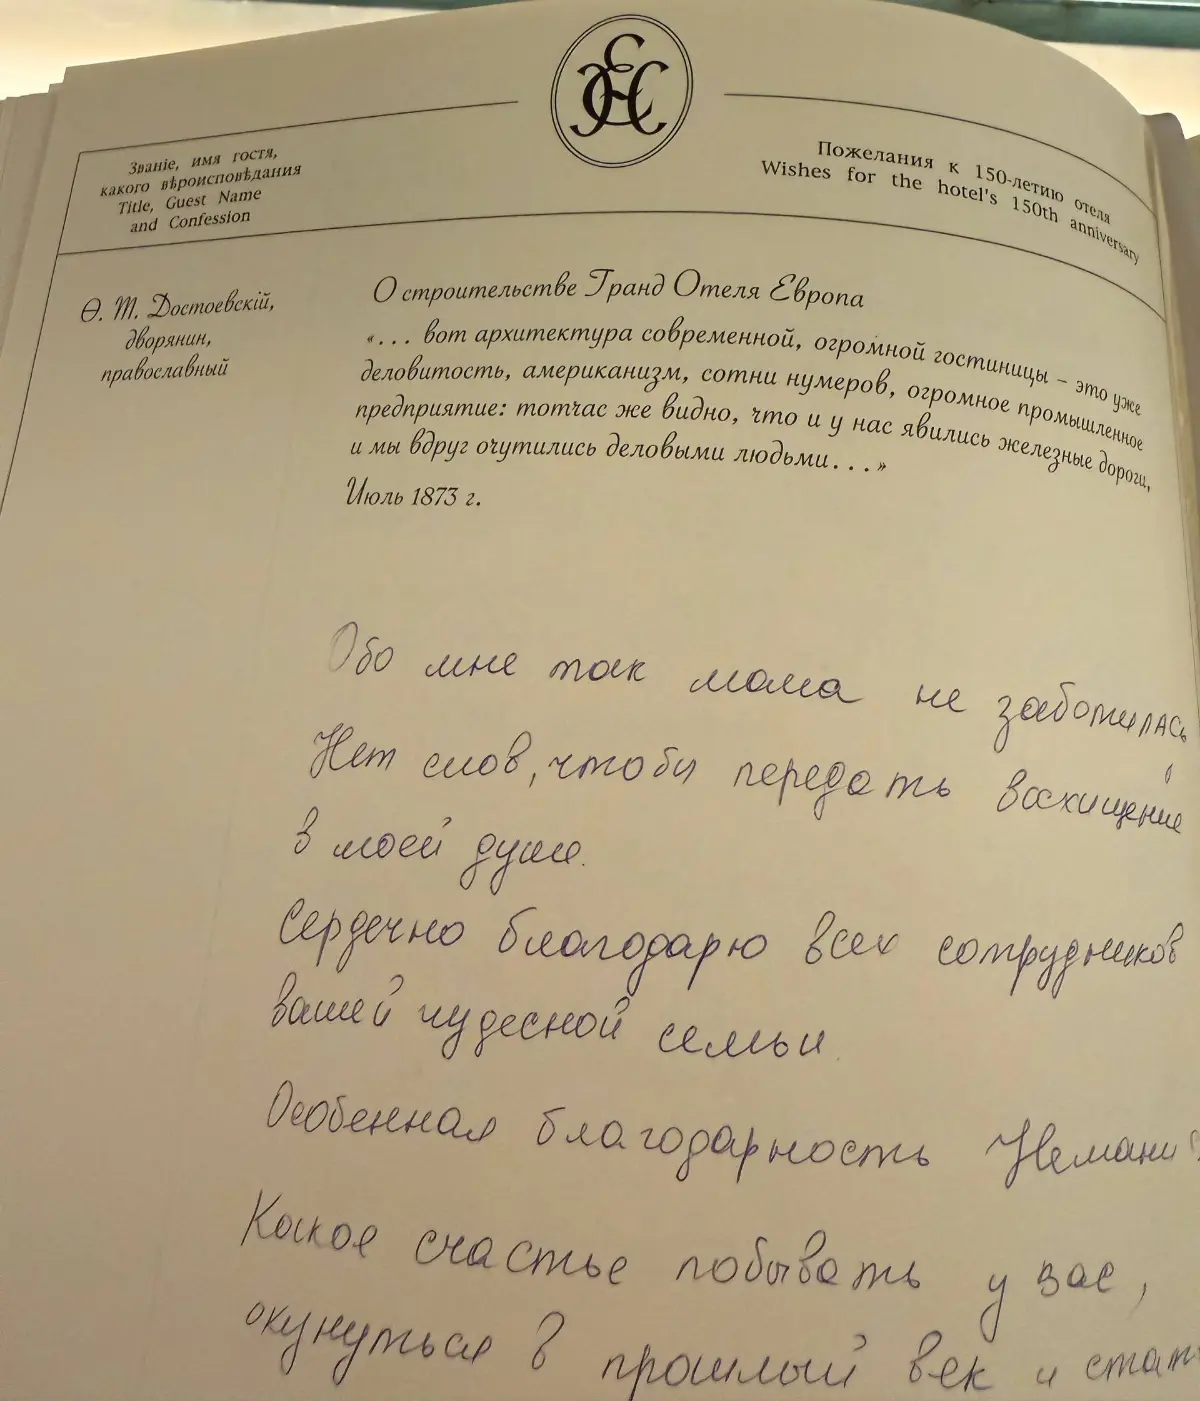 Званіе, имя гостя,
какого вѣроисповѣдания
Title, Guest Name
and Confession
Пожелания к 150-летию отеля
Wishes for the hotel's 150th anniversary
Ѳ. М. Достоевскій,
дворянин,
православный
О строительстве Гранд Отеля Европа
«... вот архитектура современной, огромной гостиницы – это уже
деловитость, американизм, сотни нумеров, огромное промышленное
предприятие: тотчас же видно, что и у нас явились железные дороги,
и мы вдруг очутились деловыми людьми...»
Июль 1873 г.
Обо мне так мама не заботилась
Нет слов, чтобы передать восхищение
в моей душе.
Сердечно благодарю всех сотрудников
вашей чудесной семьи.
Особенная благодарность
Какое счастье побывать у вас,
окунуться в прошлый век и